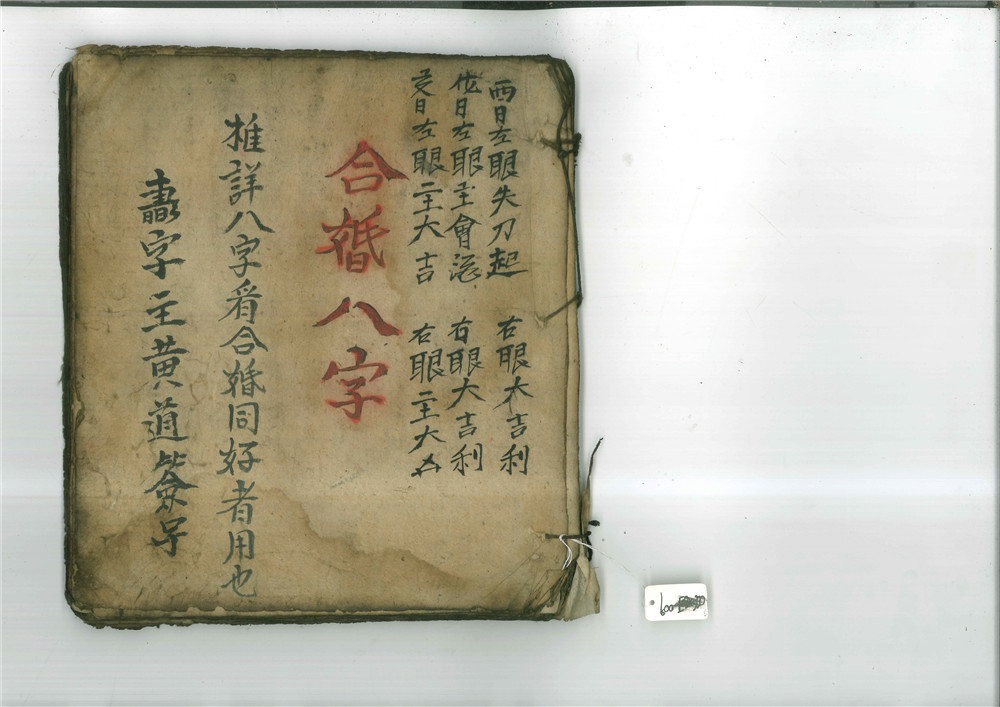 酉日左眼失刀起 右眼大吉利
戌日左眼主會 右眼大吉利
亥日左眼主大吉 右眼主大凶
合婚八字
推詳八字看合婚同好者用也
字主黄道簽号
600